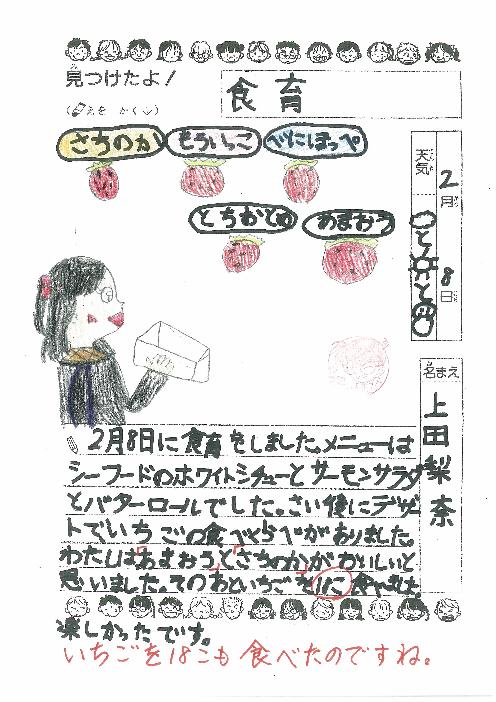 見つけたよ!
(えを かく)
食育
さちのか
もういっこ
べにほっぺ
とちおとめ
あまおう
天気
2月8日
と
と
名まえ
上田梨奈
2月8日に食育をしました。メニューは
シーフードのホワイトシチューとサーモンサラダ
とバターロールでした。さい後にデザー
トでいちごの食べくらべがありました。
わたしは「あまおう」と「さちのか」がおいしいと
思いました。そのあといちごを18こ食べました。
楽しかったです。
いちごを18こも食べたのですね。